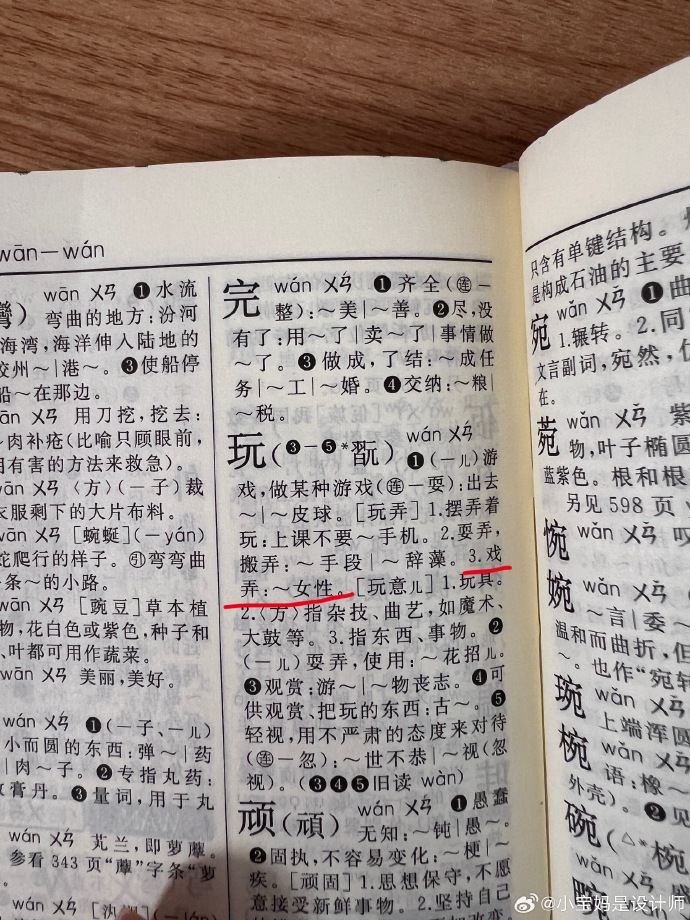 wān—wán
wān ㄨㄢ ❶水流
弯曲的地方:汾河
海湾,海洋伸入陆地的
胶州~|港~。❸使船停
船~在那边。
wān ㄨㄢ 用刀挖,挖去:
肉补疮(比喻只顾眼前,
用有害的方法来救急)。
wān ㄨㄢ〈方〉(一子)裁
衣服剩下的大片布料。
wān ㄨㄢ [蜿蜒](-yán)
蛇爬行的样子。㊁弯弯曲
条~的小路。
wān ㄨㄢ [豌豆]草本植
物,花白色或紫色,种子和
叶都可用作蔬菜。
wān ㄨㄢ 美丽,美好。
wán ㄨㄢˊ ❶(一子、一儿)
小而圆的东西:弹~|药
|肉~子。❷专指丸药:
膏丹。❸量词,用于丸
wán ㄨㄢˊ 芄兰,即萝藦。
参看343页“藦”字条“萝
wán ㄨㄢˊ
完 wán ㄨㄢˊ ❶齐全(连一
整):~美|~善。❷尽,没
有了:用~了|卖~了|事情做
~了。❸做成,了结:~成任
务|~工|~婚。❹交纳:~粮
|~税。
玩(❸-❺*翫) wán ㄨㄢˊ
❶(一儿)游
戏,做某种游戏(连一耍):出去
~|~皮球。[玩弄]1.摆弄着
玩:上课不要~手机。2.耍弄,
搬弄:~手段|~辞藻。3.戏
弄:~女性。[玩意儿]1.玩具。
2.〈方〉指杂技、曲艺,如魔术、
大鼓等。3.指东西、事物。❷
(一儿)耍弄,使用:~花招儿。
❸观赏:游~|~物丧志。❹可
供观赏、把玩的东西:古~。❺
轻视,用不严肃的态度来对待
(连一忽):~世不恭|~视(忽
视)。(❸❹❺旧读 wàn)
顽(頑) wán ㄨㄢˊ ❶愚蠢
无知:~钝|愚~。
❷固执,不容易变化:~梗|~
疾。[顽固]1.思想保守,不愿
意接受新鲜事物。2.坚持自己
只含有单键结构。
是构成石油的主要
宛 wǎn ㄨㄢˇ ❶曲
1.辗转。2.同
文言副词,宛然,仿
在。
菀 wǎn ㄨㄢˇ 紫
物,叶子椭圆
蓝紫色。根和根
另见598页
惋 wǎn ㄨㄢˇ 叹
婉 wǎn ㄨㄢˇ
~言|委~
温和而曲折,但
~。也作“宛转
琬 wǎn ㄨㄢˇ
上端浑圆
椀 wǎn ㄨㄢˇ
语:橡~
外壳)。❷见
碗(△*椀
wǎn ㄨㄢˇ
@小宝妈是设计师